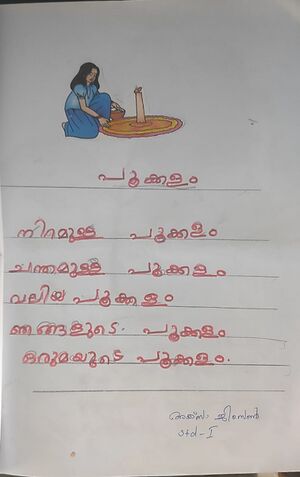 പൂക്കളം
നിറമുള്ള പൂക്കളം
ചന്തമുള്ള പൂക്കളം
വലിയ പൂക്കളം
ഞങ്ങളുടെ. പൂക്കളം
ഒരുമയുടെ പൂക്കളം.
std-I